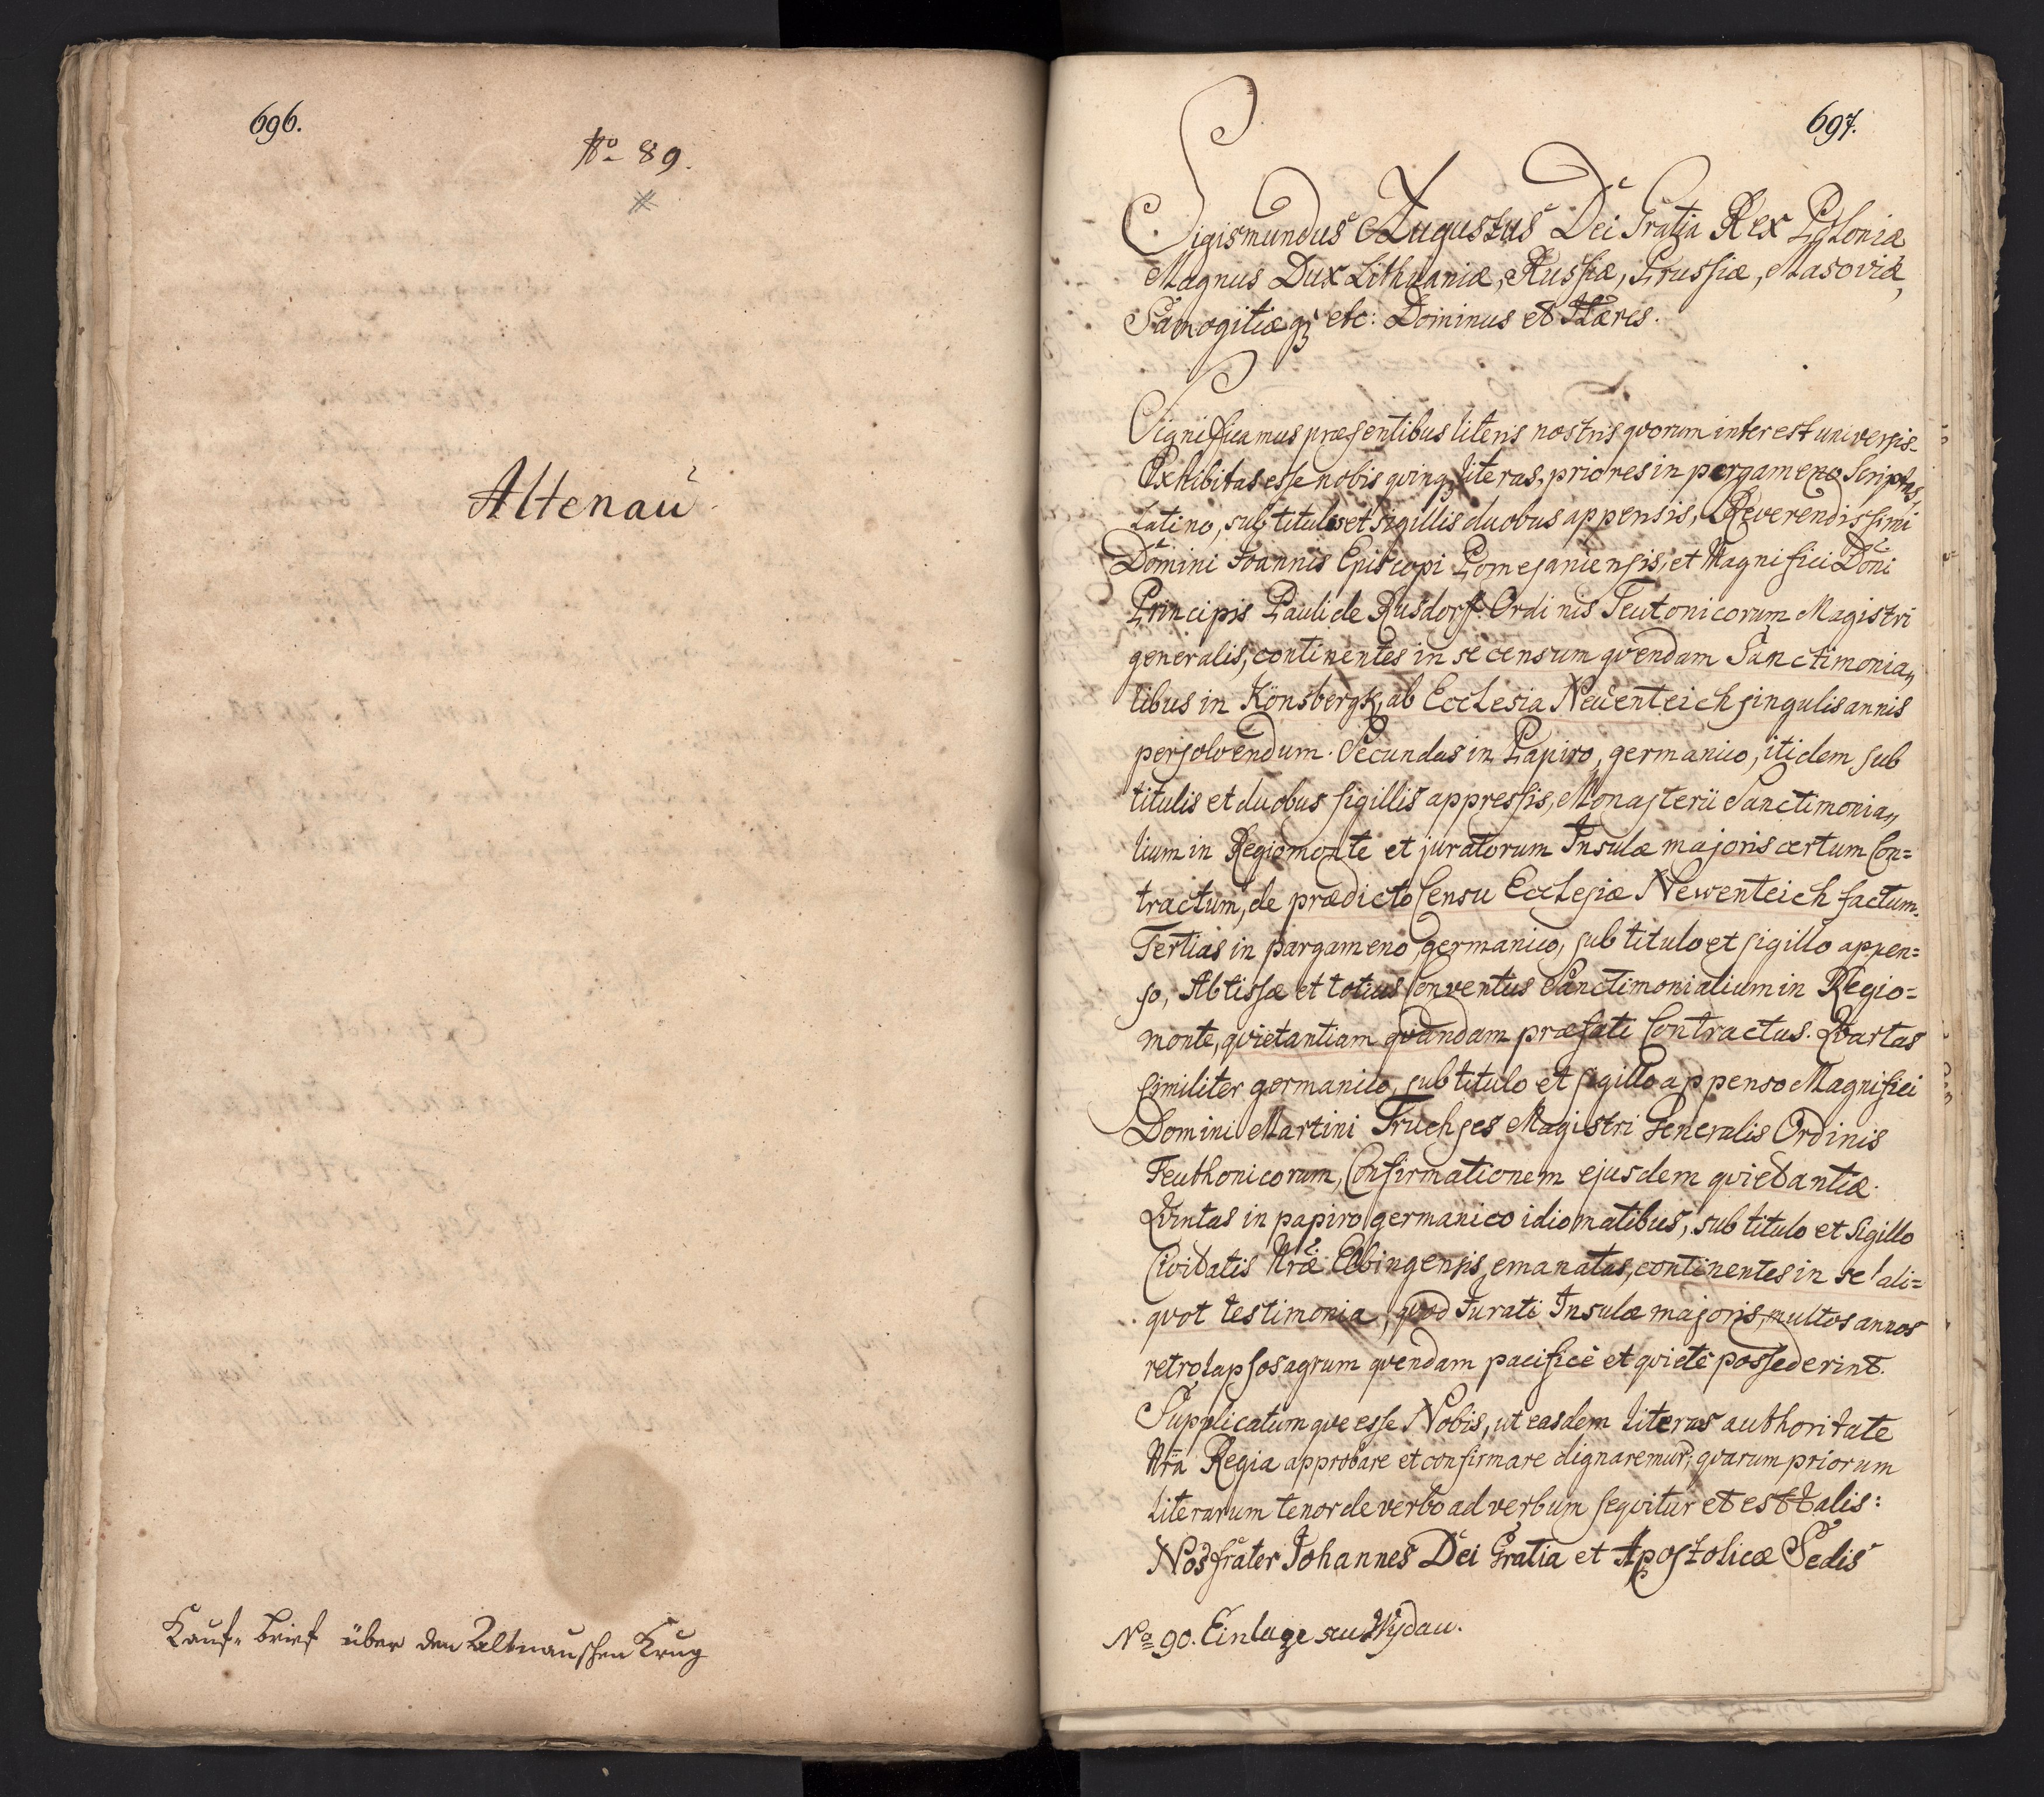 696.
No 89.
Altenau
Kauf-brief über den Altnauschen Krug
697.
Sigismundus Augustus Dei Gratia Rex Poloniæ
Magnus Dux Lithuaniæ, Russiæ, Prussiæ, Masoviæ,
Samogitiæq; etc: Dominus et Hæres.
Significamus præsentibus literis nostris qvorum interest universis.
Exhibitas esse nobis qvinq; literas, priores in pergameno scriptas,
Latino, sub titulo et sigillis duobus appensis, Reverendissimi
Domini Joannis Episcopi Pomesaniensis, et Magnifici Dni
Principis Pauli de Rusdorf Ordinis Teutonicorum Magistri
generalis, continentes in se censum qvendam Sanctimonia„
libus in Könsbergk, ab Ecclesia Neüenteich singulis annis
persolvendum. Secundas in Papiro, germanico, itidem sub
titulis et duobus sigillis appressis, Monasterii Sanctimonia„
lium in Regiomonte et juratorum Insulæ majoris certum Con=
tractum, de prædicto Censu Ecclesiæ Newenteich factum.
Tertias in pargameno germanico, sub titulo et sigillo appen=
so, Abtissæ et totius Conventus Sanctimonialium in Regio=
monte, qvietantiam qvandam præfati Contractus. Qvartas
similiter germanico, sub titulo et sigillo appenso Magnifici
Domini Martini Truchses Magistri Generalis Ordinis
Teuthonicorum, Confirmationem ejusdem qvietantiæ.
Qvintas in papiro germanico idiomatibus, sub titulo et sigillo
Civitatis Nræ Elbingensis, emanatas, continentes in se ali=
qvot testimonia, qvod Jurati Insulæ majoris, multos annos
retrolapsos agrum qvendam pacifice et qviete possederint.
Supplicatumqve esse Nobis, ut easdem literas authoritate
Nrã Regia approbare et confirmare dignaremur, qvarum priorum
literarum tenor de verbo ad verbum seqvitur et est talis:
Nos frater Johannes Dei Gratia et Apostolicæ Sedis
No 90. Einlage seu Wysdau.